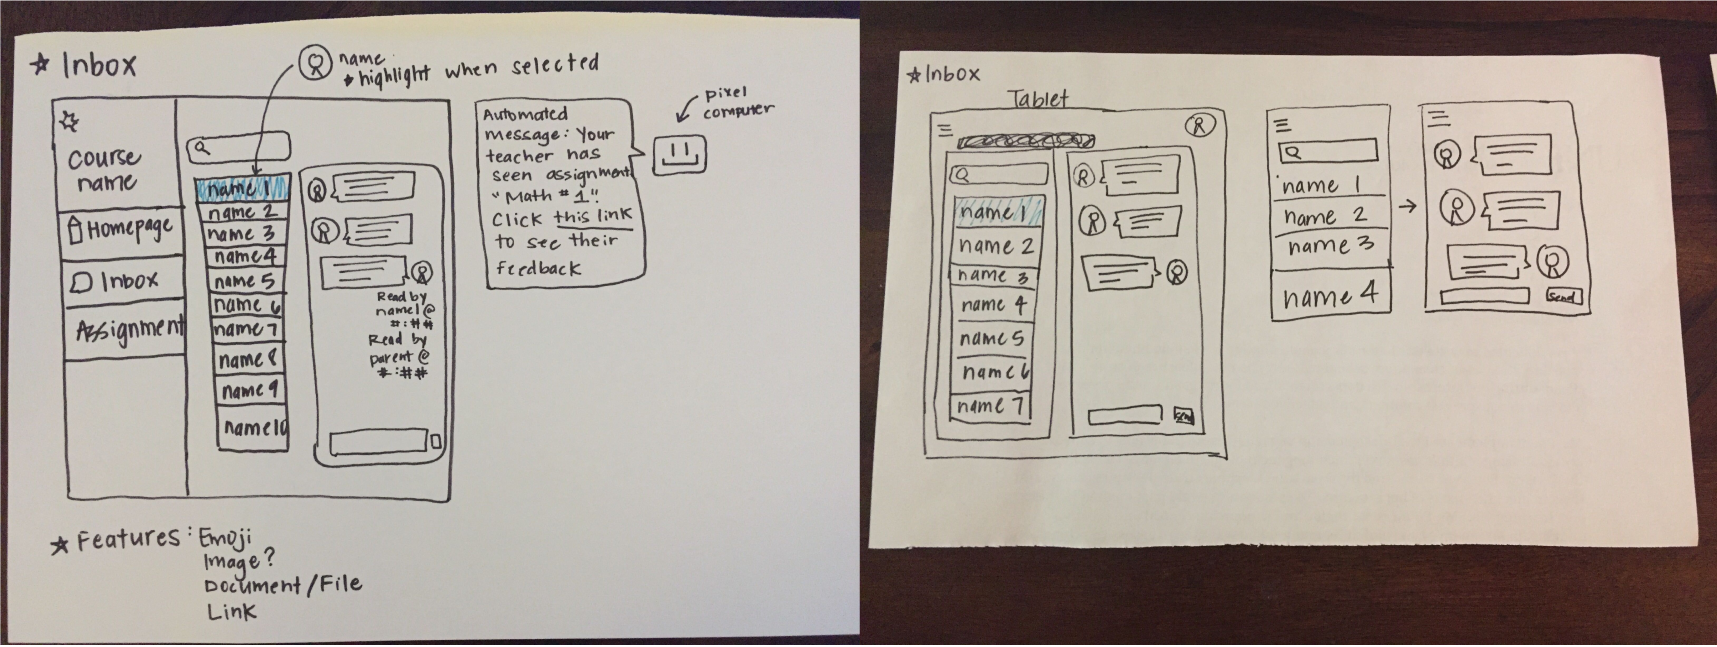 Inbox
name
highlight when selected
course
name
Homepage
Inbox
Assignment
name 1
name 2
name 3
name 4
name 5
name 6
name 7
name 8
name 9
name 10
Read by
name1 @
#:##
Read by
parent @
#:##
Automated
message: Your
teacher has
seen assignment
"Math #1"!
Click this link
to see their
feedback
pixel
computer
Features: Emoji
Image?
Document/File
Link
Inbox
Tablet
name 1
name 2
name 3
name 4
name 5
name 6
name 7
send
name 1
name 2
name 3
name 4
send